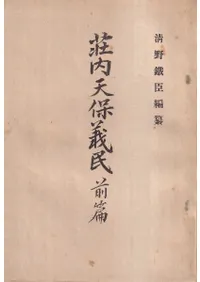 清野鐵臣編纂
荘内天保義民
前篇